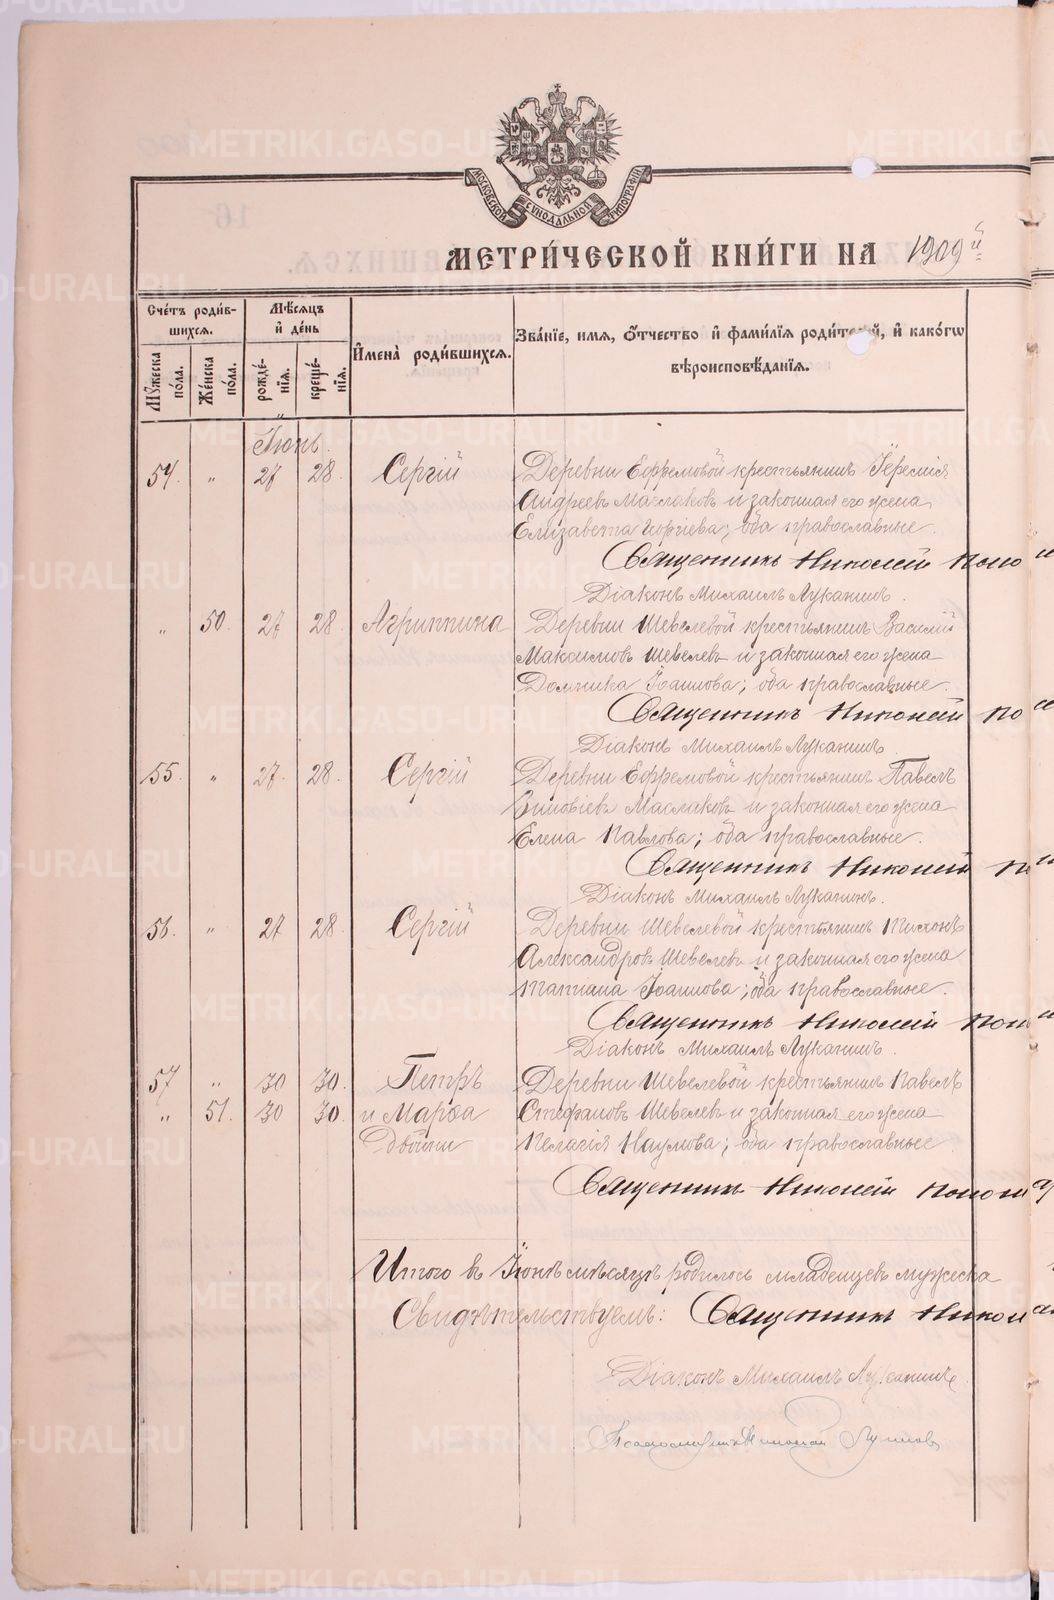 МОСКОВСКОЙ СѴНОДАЛЬНОЙ ТИПОГРАФІИ
МЕТРИ́ЧЕСКОЙ КНИ́ГИ НА 1909й
Сче́тъ роди́в-
шихся.
Мѣ́сяцъ
и҆ де́нь
Мꙋ́жеска по́ла.
Же́нска по́ла.
рожде́-нїѧ.
креще́-нїѧ.
И҆мена̀ роди́вшихсѧ.
Зва́нїе, имѧ, ѻ҆́тчество и҆ фами́лїѧ роди́телей, и҆ како́гѡ
вѣроисповѣ́данїѧ.
Іюнь.
54. " 27 28. Сергій Деревни Ефремовой крестьянинъ Іеремія
Андреевъ Маслаковъ и законная его жена
Елизавета Георгіева; оба православные.
Священникъ Николай Попо
Діаконъ Михаилъ Луканинъ.
" 50. 27 28. Агриппина Деревни Шевелевой крестьянинъ Василій
Максимовъ Шевелевъ и законная его жена
Домника Іоаннова; оба православные.
Священникъ Николай По
Діаконъ Михаилъ Луканинъ.
55. " 27. 28. Сергій Деревни Ефремовой крестьянинъ Павелъ
Зиновіевъ Маслаковъ и законная его жена
Елена Павлова; оба православные.
Священникъ Николай П
Діаконъ Михаилъ Луканинъ.
56. " 27 28. Сергій Деревни Шевелевой крестьянинъ Тихонъ
Александровъ Шевелевъ и законная его жена
Татіана Іоаннова; оба православные.
Священникъ Николай Поп
Діаконъ Михаилъ Луканинъ.
57 " 30 30. Петръ Деревни Шевелевой крестьянинъ Павелъ
" 51. 30 30. и Марѳа Стефановъ Шевелевъ и законная его жена
Двойни Пелагія Наумова; оба православные
Священникъ Николай Попо
Итого въ Іюнѣ мѣсяцѣ родилось младенцевъ мужеска
Свидѣтельствуемъ: Священникъ Никол
Діаконъ Михаилъ Луканинъ.
Псаломщикъ Николай
METRIKI.GASO-URAL.RU